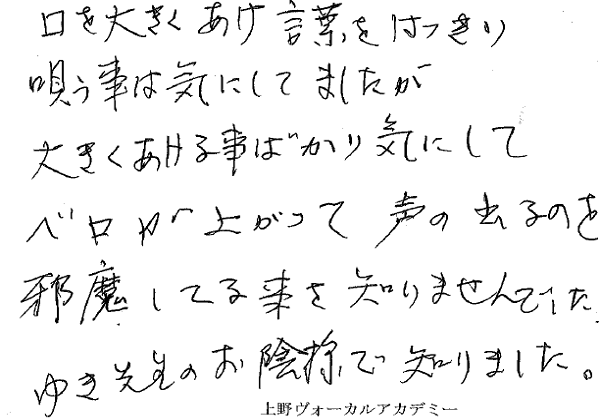 口を大きくあけ言葉をはっきり
唄う事は気にしてましたが
大きくあける事ばかり気にして
ベロが上がって声の出るのを
邪魔してる事を知りませんでした
ゆき先生のお陰様で知りました。
上野ヴォーカルアカデミー